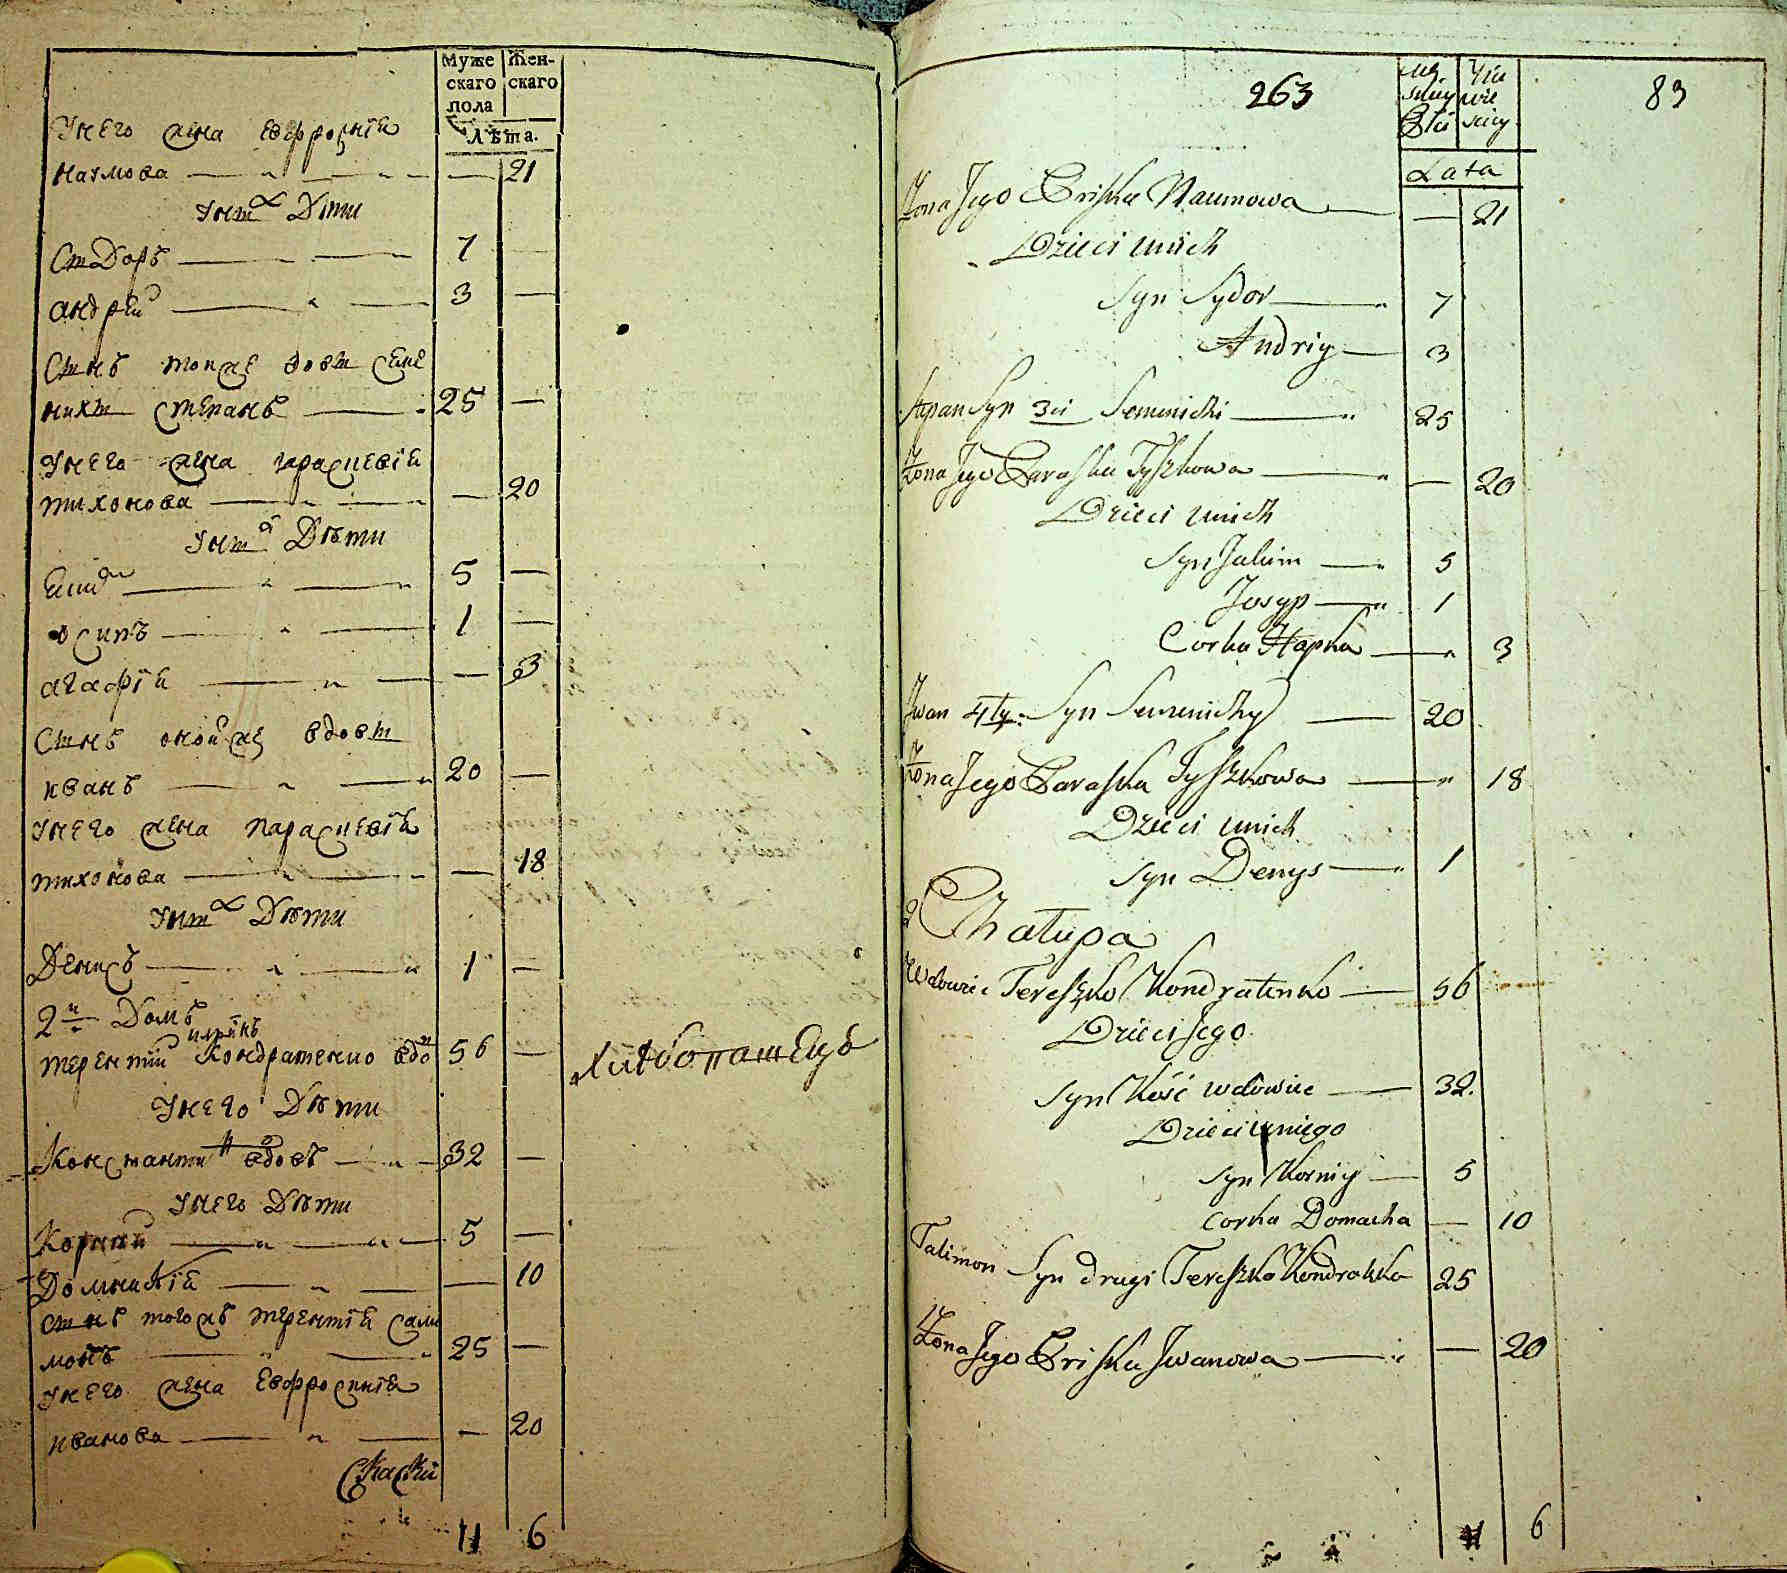 Муже
скаго
пола
Жен-
скаго
Лѣта.
У него жена Евфросинія
Наумова — — — 21
У ных Дѣти
Сидоръ — — 7 —
Андрей — — 3 —
Сынъ тойже вдовы Семе
нихи Степанъ — 25 —
У него жена Параскевія
Тихонова — — — 20
У ных Дѣти
Еким — — 5 —
Осипъ — — 1 —
Агафія — — — 3
Сынъ онойже вдовы
Иванъ — — 20 —
У него жена Параскевія
Тихонова — — — 18
У ных Дѣти
Денисъ — — 1 —
2й Домъ
Терентий Кондратенко вдо 56 —
У него Дѣти
Константин вдовъ — 32 —
У него Дѣти
Корний — — 5 —
Домникія — — — 10
Сынъ тогожъ Терентія Сали
монъ — — 25 —
У него жена Евфросинія
Иванова — — — 20
Сказки
11 6
Хлѣбопашецъ
263
83
Lata
Żona Jego Priska Naumowa — — 21
Dzieci unich
Syn Sydor — 7
Andriy — 3
Stepan Syn 3ci Semenichi — 25
Żona Jego Paraska Tyszkowa — — 20
Dzieci unich
Syn Jakim — 5
Josyp — 1
Corka Hapka — 3
Jwan 4ty Syn Semenichy — 20
Żona Jego Paraska Tyszkowa — 18
Dzieci unich
Syn Denys — 1
2 Chałupa
Wdowiec Tereszko Kondratenko — 56
Dzieci Jego
Syn Kość wdowiec — 32
Dzieci uniego
Syn Korniy — 5
Corka Domacha — 10
Talimon Syn drugi Tereszka Kondratka 25
Żona Jego Priska Jwanowa — — 20
11 6